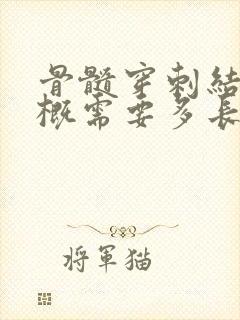 骨髓穿刺結
概需要多長
将軍猫